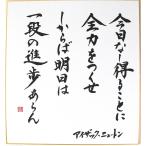 今日なし得ることに
全力をつくせ
しからば明日は
一段の進歩あらん
アイザック・ニュートン